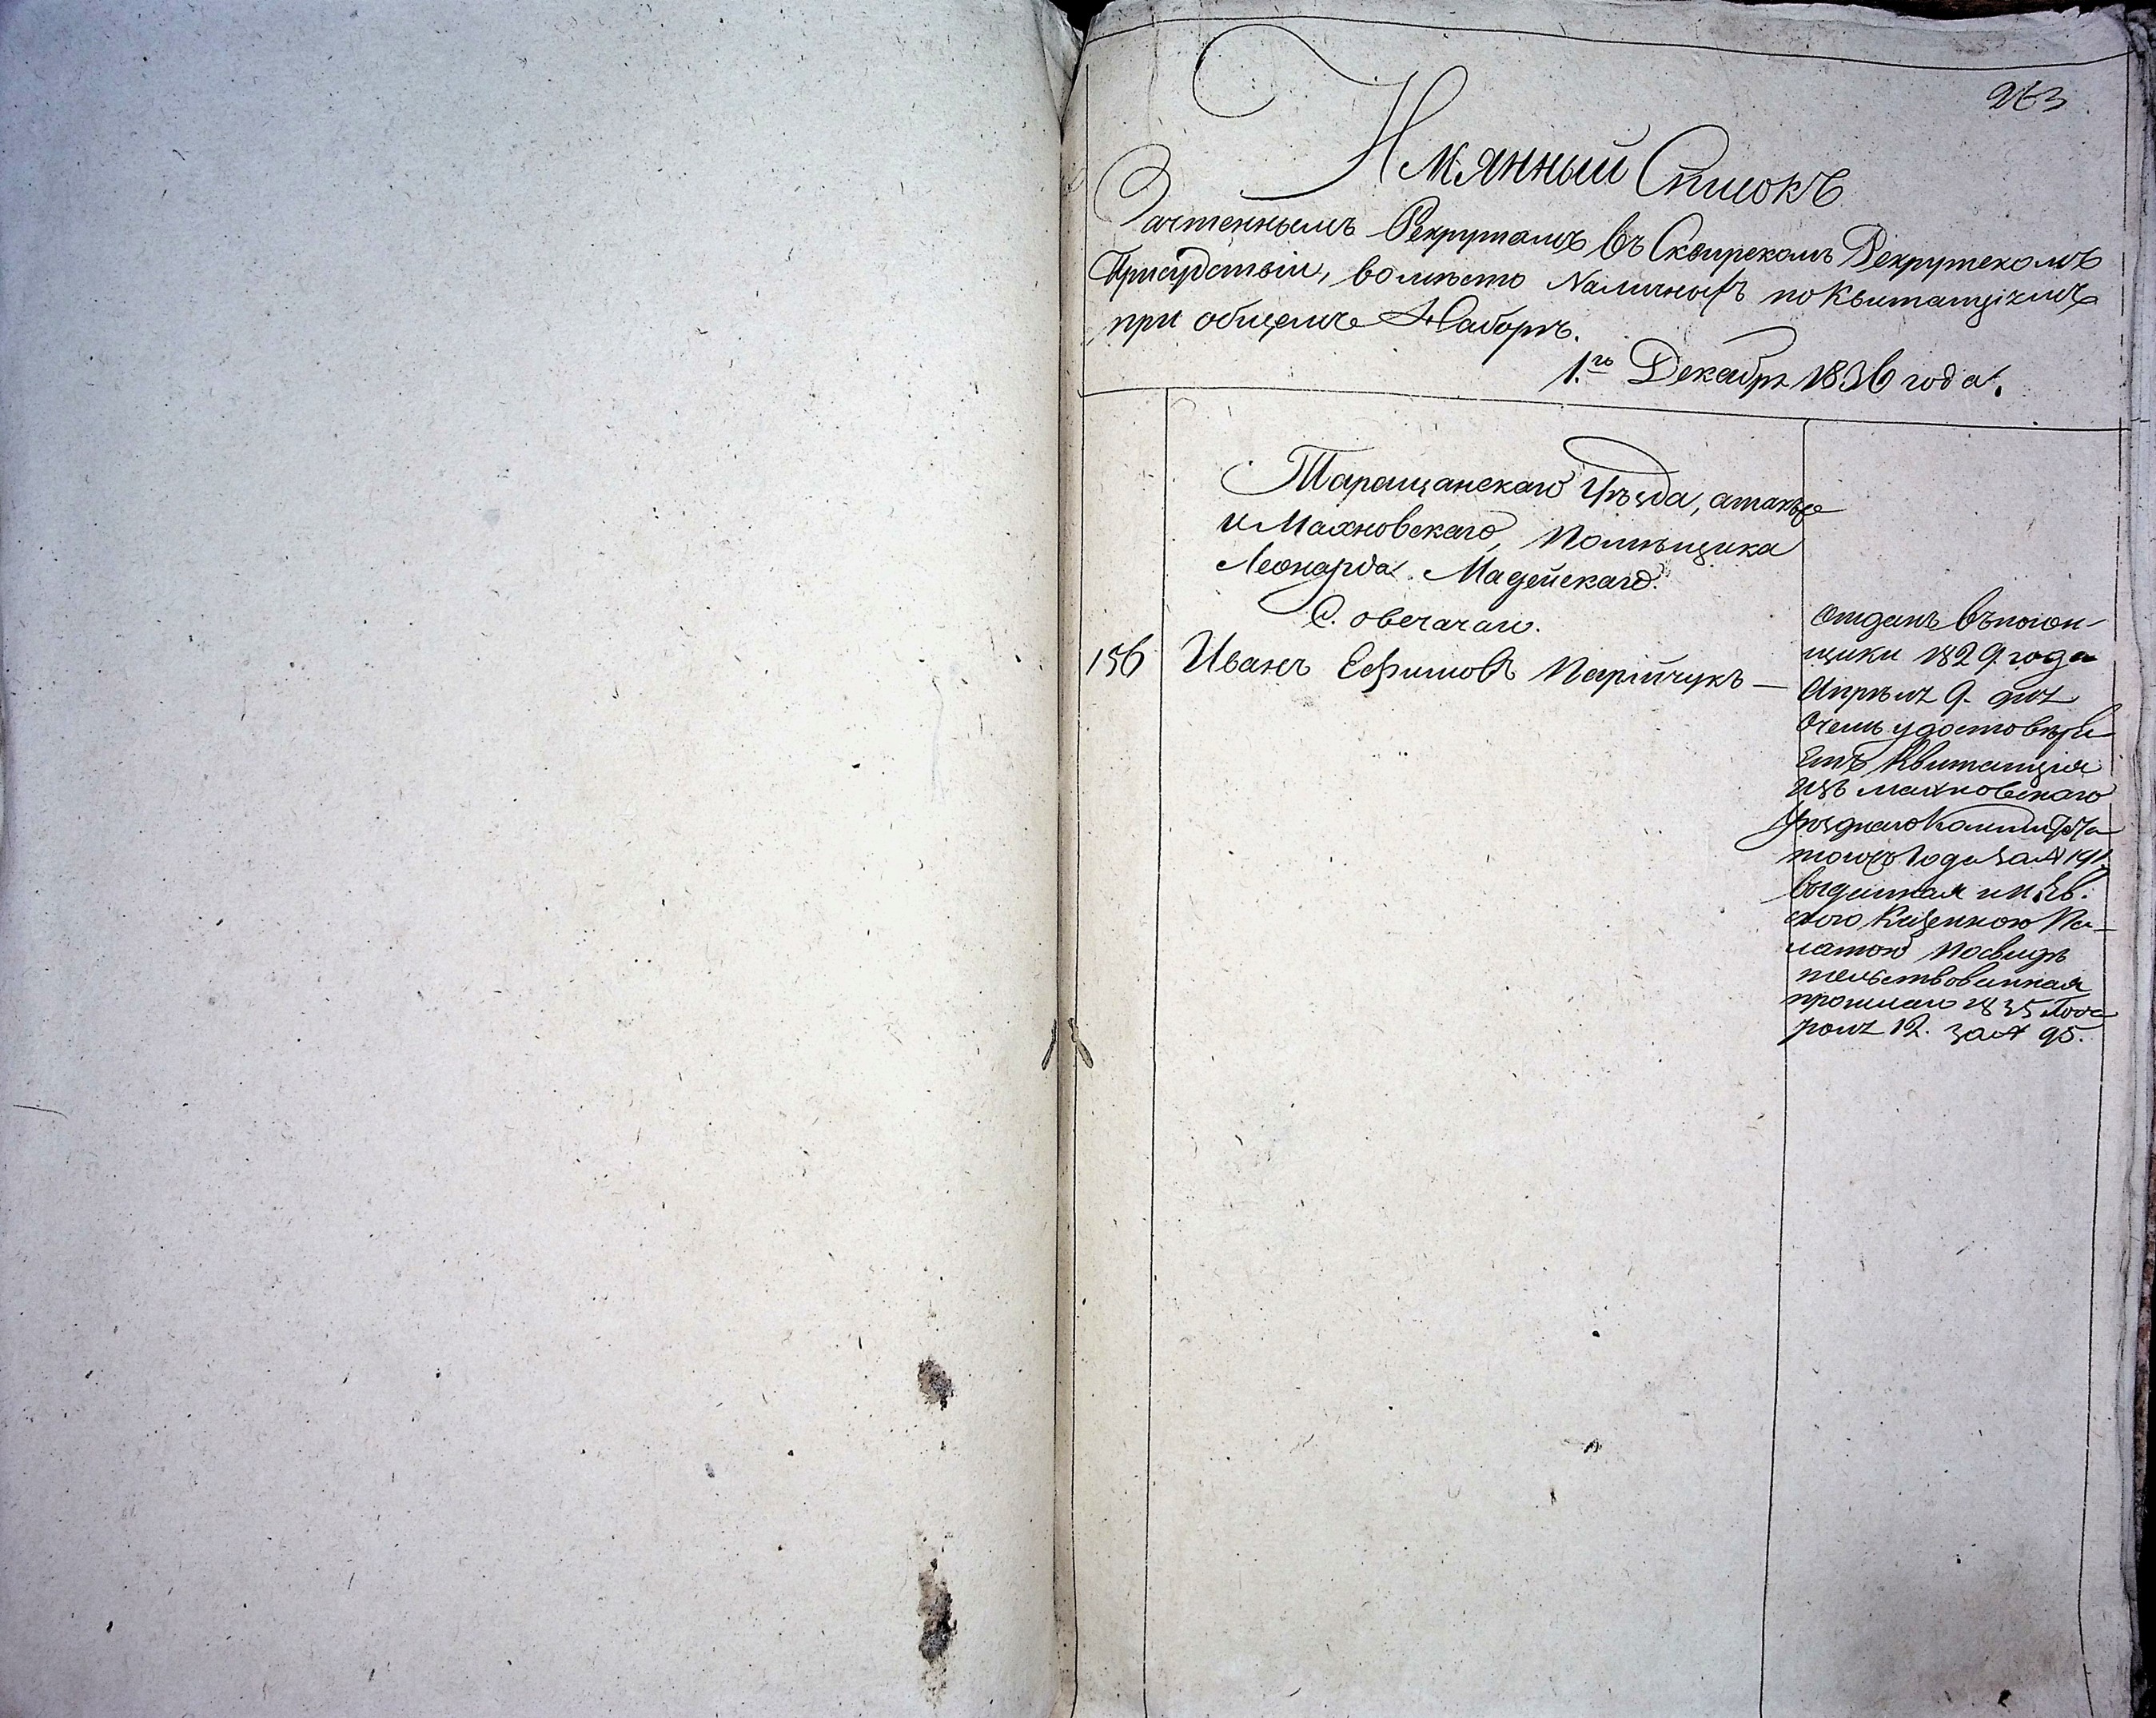 263
Имянный Списокъ
Зачтеннымъ Рекрутамъ въ Сквирскомъ Рекрутскомъ
Присудствіи, вомѣсто Наличныхъ по Квитанціямъ
при общемъ Наборѣ.
1.го Декабря 1836 года.
Таращанскаго Уѣзда, атакже
и Махновскаго, Помѣщика
Леонарда Мадейскаго.
С. овечачаго.
156 Иванъ Ефимовъ Парійчукъ —
отданъ въпогон-
щики 1829 года
Апрѣля 9. дня
Очемъ удостовѣря
Етъ Квитанція
изъ махновскаго
Уѣзднаго
тогожъ Года за № 191
выданная и Кіев.
скою Казенною Па-
латою Посвидѣ
тельствованная
прошлаго 1835 Года
12. за № 95.